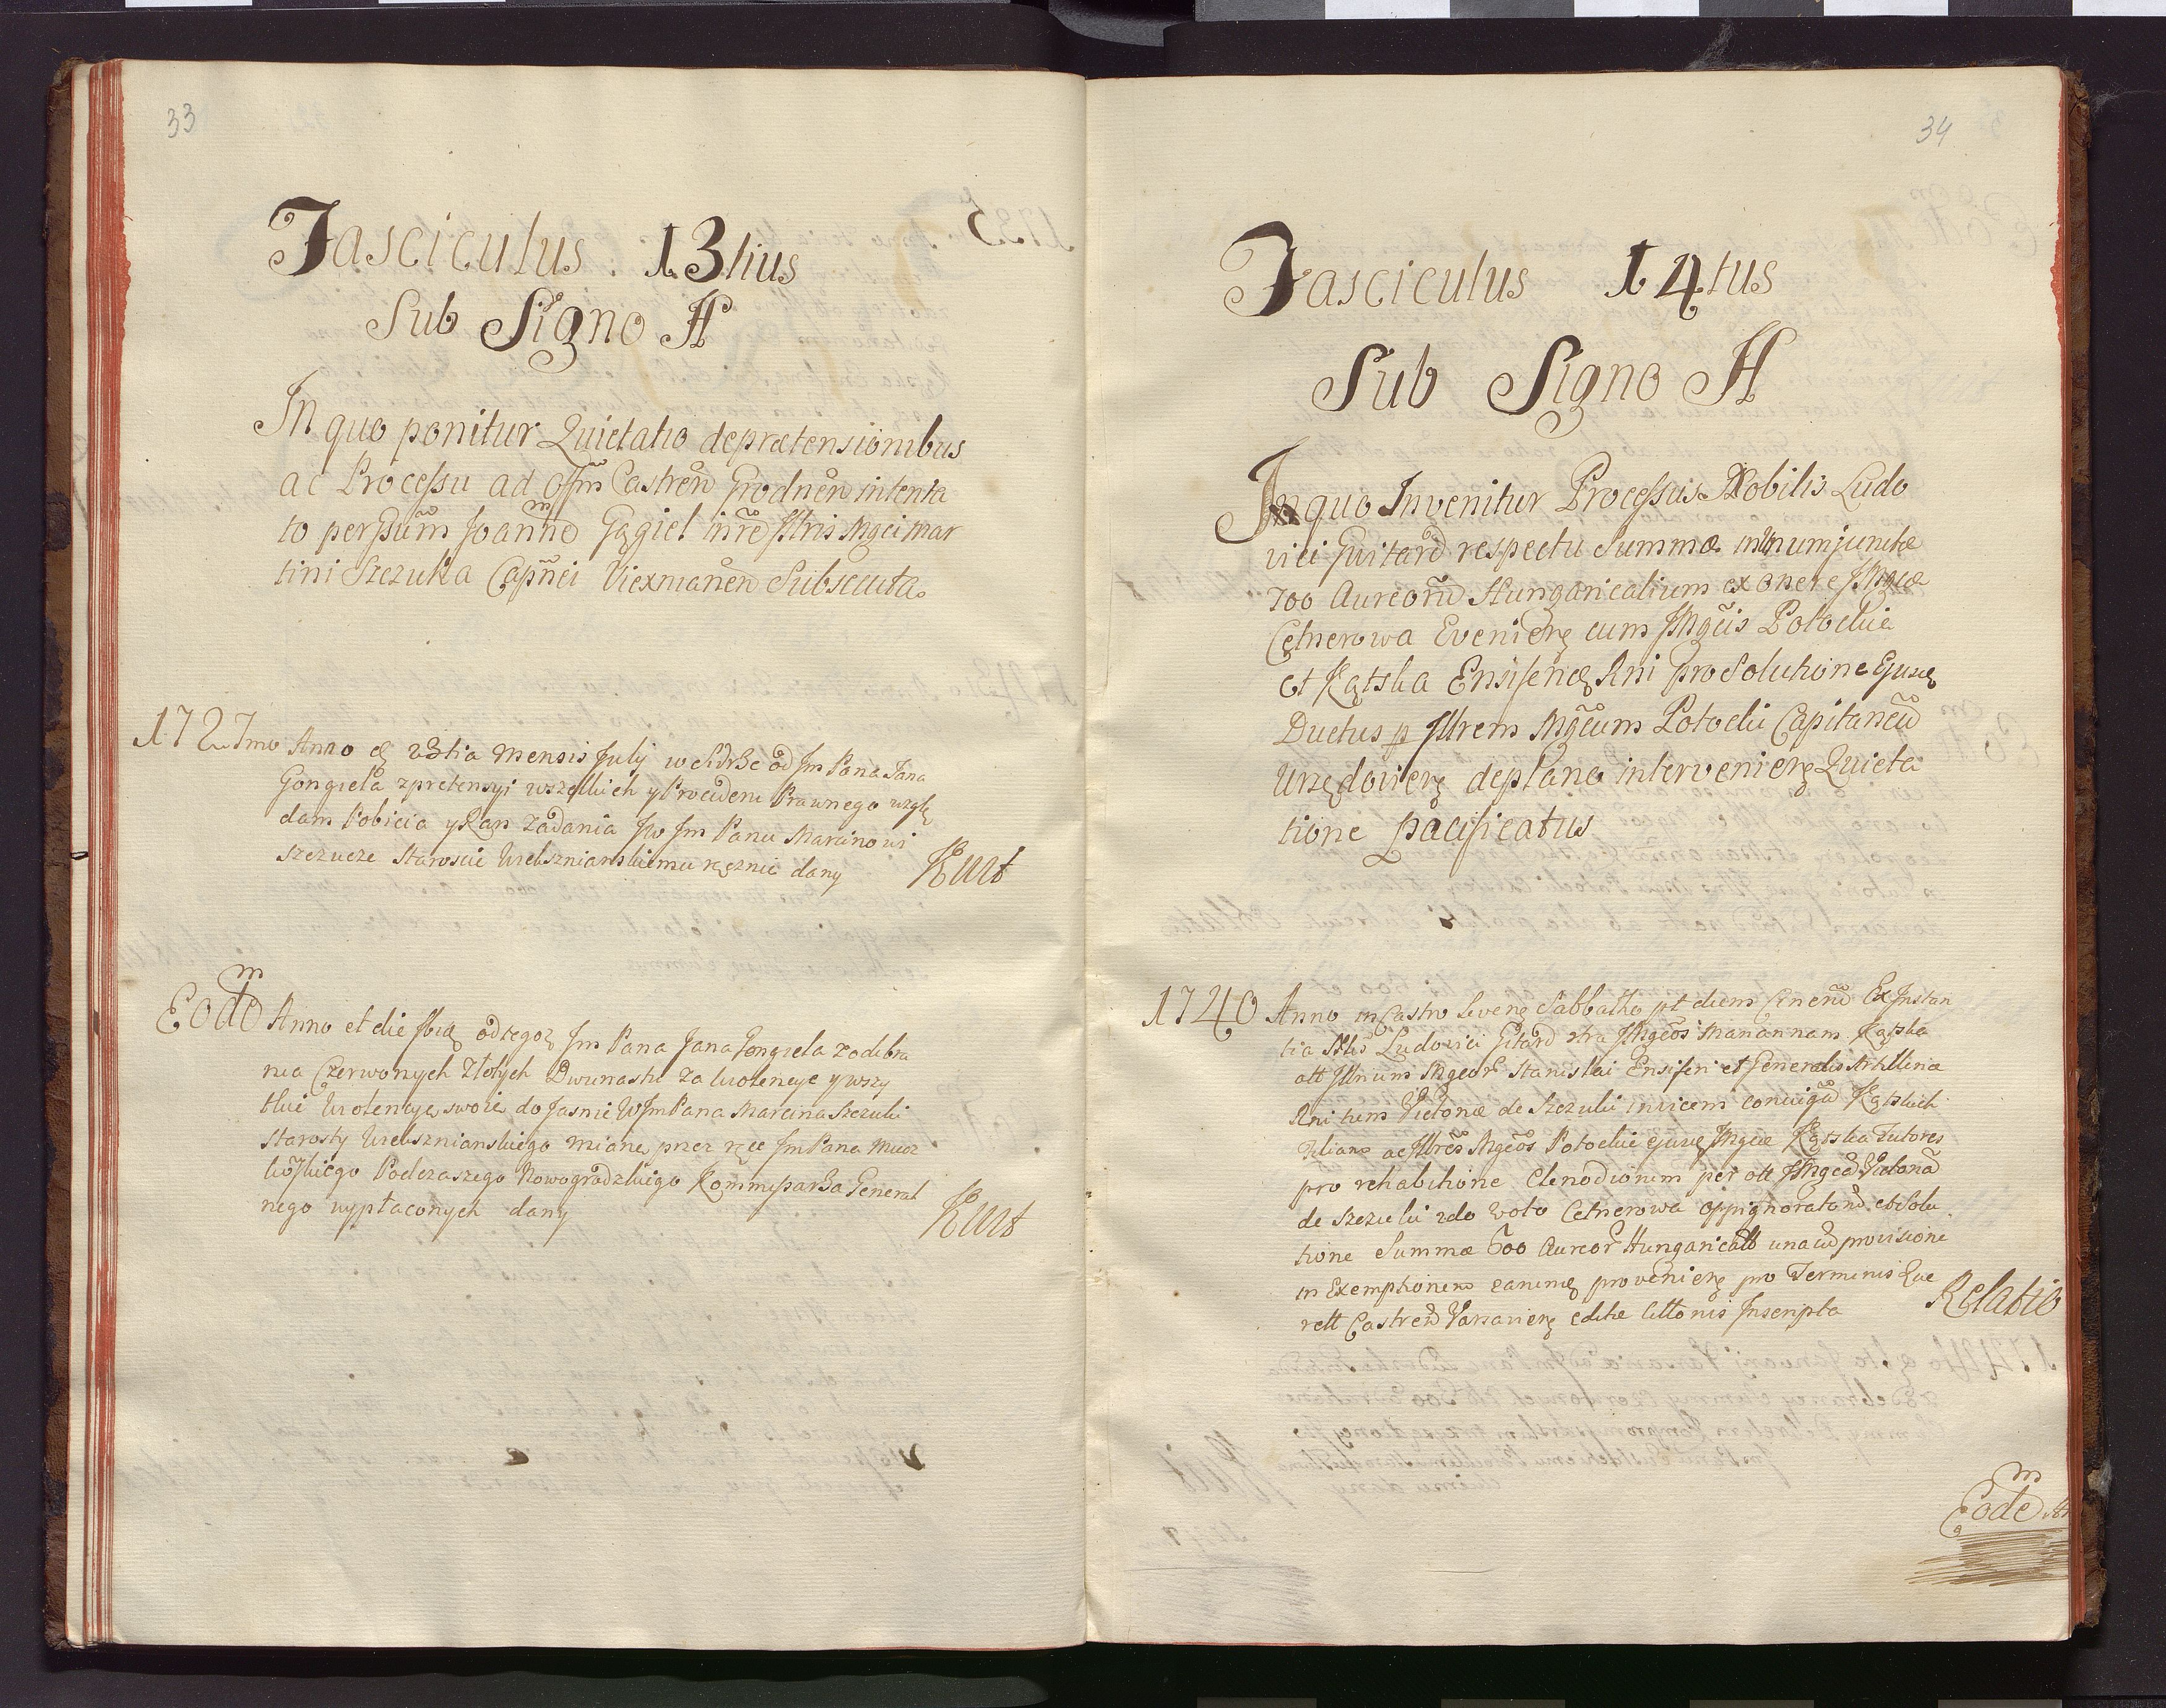 33
Fasciculus 13tius
Sub Signo H
In quo ponitur Quietatio depraetensionibus
ac Processu ad Offm Castren Grodnen intenta
to persum Joannem Gągiel inre Illris Mgci Mar
tini Szczuka Capnei Viexnianen Subsecuta
1727mo Anno et 23tia Mensis July w Sidrze od Jm Pana Jana
Gongiela zpretensyi wszelkich y Procederu Prawnego wzglę
dam Pobicia y Ran zadania Jw Jm Panu Marcinowi
Szczucze Staroscie Wieksznianskiemu ręcznie dany Kwit
Eodem Anno et die odtegoż Jm Pana Jana Gongiela zodebra
nia Czerwonych Złotych Dwunastu za kwotencye y wszy
tkie kwotencye swoie do Jasnie W Jm Pana Marcina Szczuki
Starosty Wieksznianskiego miane przez ręce Jm Pana
Podczaszego Nowogrodzkiego Kommissarza General
nego wypłaconych dany Kwit
34
Fasciculus 14tus
Sub Signo H
In quo Invenitur Processus Nobilis Ludo
vici Guitard respectu Summæ in Unum junctæ
700 Aureoru Hungaricalium ex onere JMgcæ
Cetnerowa Evenien cum JMgcis Potockie
et Kątska Ensiferæ Rni pro Solutione Ejusq
Ductus p Illrem Mgcum Potocki Capitaneu
Urzędovien deplano intervenien Quieta
tione pacificatus
1740 Anno in Castro Leven Sabbatho pt diem Cineru Ex Instan
tia Nblis Ludovici Gitard ctra JMgcos Mariannam Kątska
olt Illrium Mgcor Stanislai Ensiferi et Generalis Artilleriæ
Rni tum Victoriæ de Szczuki invicem conjugu Kątskich
filiam ac Illres Mgcos Potockie ejusq Mgcæ Kątska Tutores
pro rehabitione Clenodiorum per olt JMgca Victoria
de Szczuki 2do Voto Cetnerowa oppignoratoru et Solu
tione Summæ 600 Aureor Hungaricall una cu provisione
in Exemptionem earumq provenien pro Terminis Que
rell Castren Varsavien editæ Cittonis Inscripta Relatio
Eodem